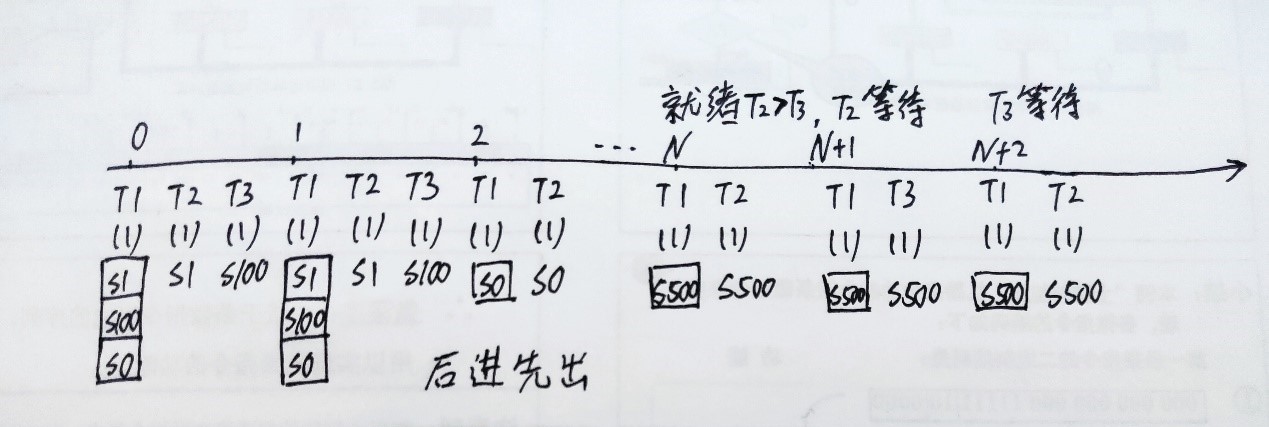 就绪T2>T3, T2等待 T3等待
0 1 2 ... N N+1 N+2
T1 T2 T3 T1 T2 T3 T1 T2 T1 T2 T1 T3 T1 T2
(1) (1) (1) (1) (1) (1) (1) (1) (1) (1) (1) (1) (1) (1)
S1 S1 S100 S1 S1 S100 S0 S0 S500 S500 S500 S500 S500 S500
S100 S100
S0 S0 后进先出